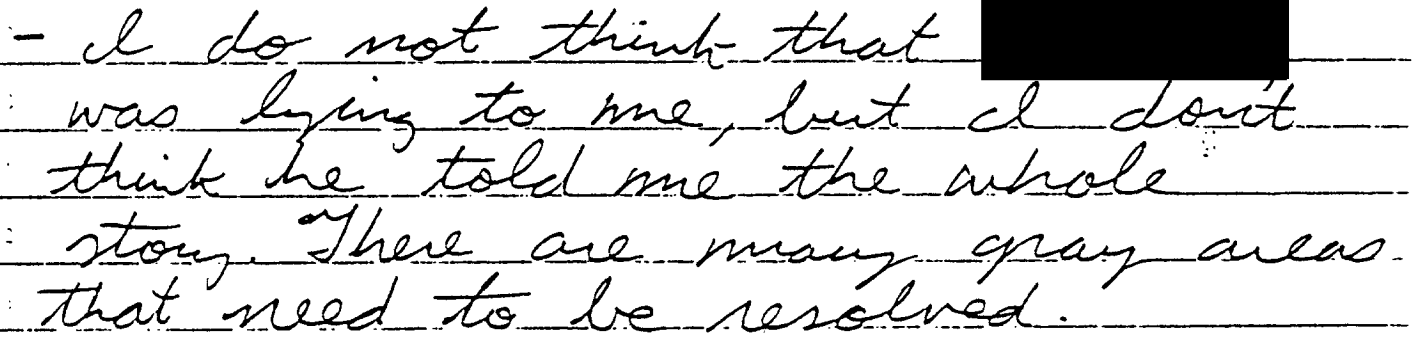 - I do not think that
was lying to me, but I don't
think he told me the whole
story. There are many gray areas
that need to be resolved.